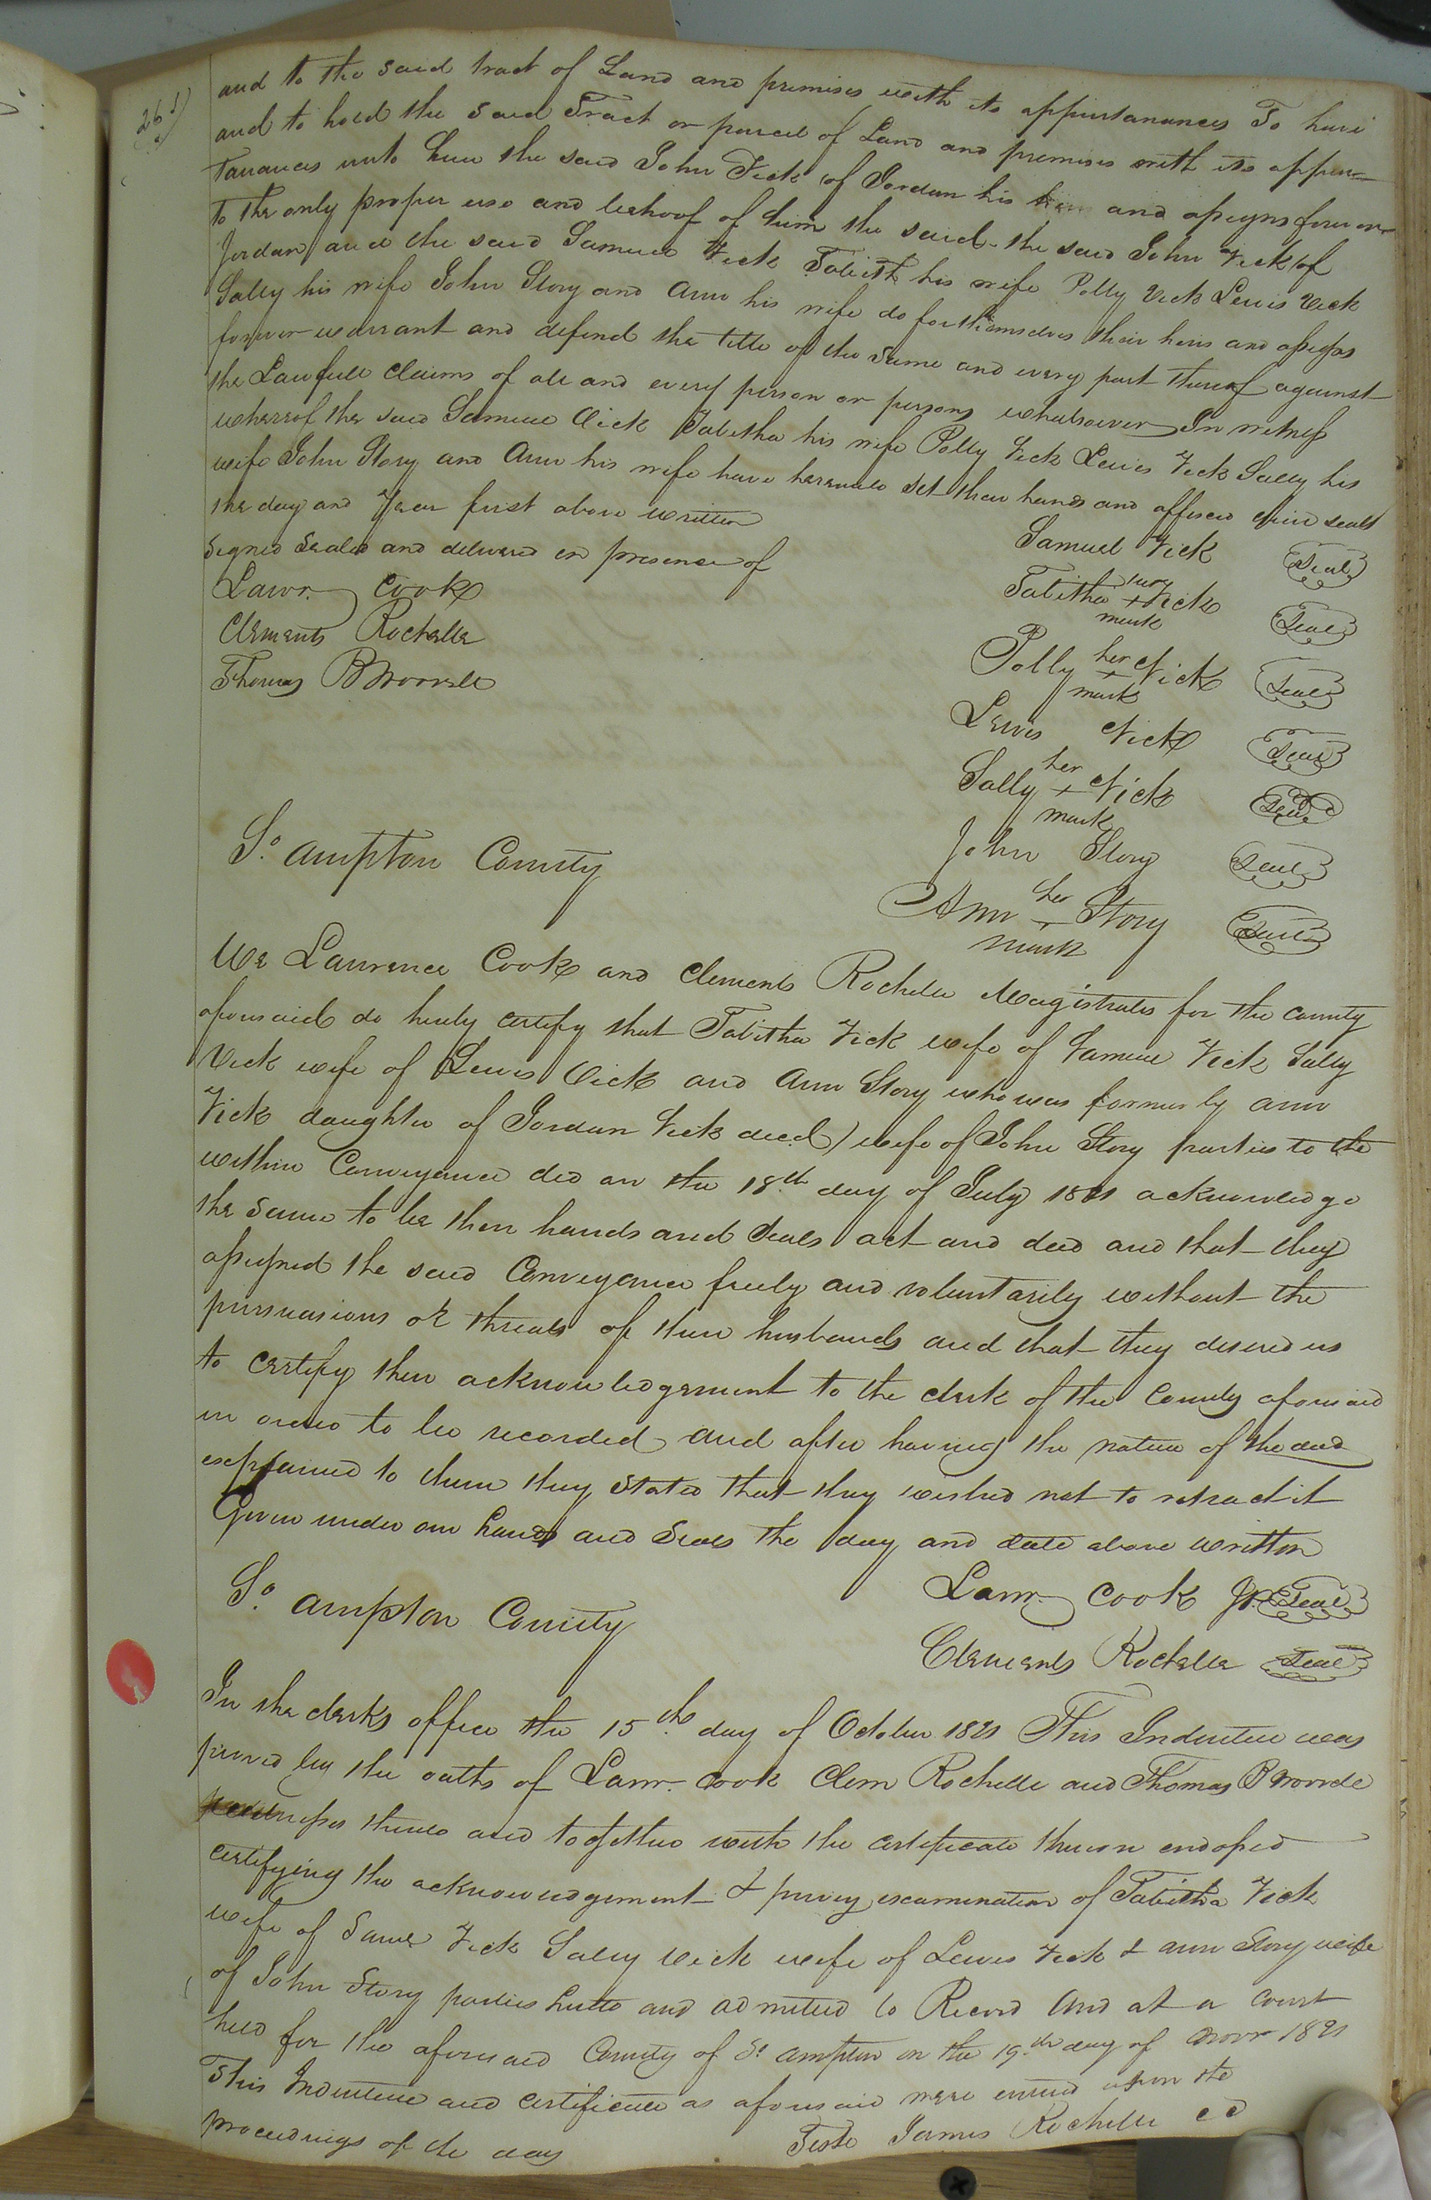 and to the said tract of Land and premises with its appurtanances To have
and to hold the said Tract or parcel of Land and premises with its appur=
tanances unto him the said John Vick (of Jordan his heirs and assigns forever
to the only proper use and behoof of him the said the said John Vick (of
Jordan) and the said Samuel Vick Tabitha his wife Polly Vick Lewis Vick
Sally his wife John Story and Ann his wife do for themselves their heirs and assigns
forever warrant and defend the title of the same and every part thereof against
the Lawfull claims of all and every person or persons whatsoever In witness
whereof the said Samuel Vick Tabitha his wife Polly Vick Lewis Vick Sally his
wife John Story and Ann his wife have hereunto set their hands and affixed their seals
the day and Year first above written
Signed Sealed and delivered in presence of
Lawr. Cook
Clements Rochelle
Thomas B Worrell
Samuel Vick Seal
Tabitha her + mark Vick Seal
Polly her + mark Vick Seal
Lewis Vick Seal
Sally her + mark Vick Seal
John Story Seal
Ann her + mark Story Seal
So. ampton County
We Lawrence Cook and Clements Rochelle Magistrates for the county
aforesaid do hereby certify that Tabitha Vick wife of Samuel Vick Sally
Vick wife of Lewis Vick and Ann Story who was formerly ann
Vick daughter of Jordan Vick decd) wife of John Story parties to the
within Conveyance did on the 18th day of July 1821 acknowledge
the same to be their hands and Seals act and deed and that they
assigned the said Conveyance freely and voluntarily without the
pursuasions or threats of their husbands and that they desired us
to certify their acknowledgement to the clerk of the County aforesaid
in order to be recorded and after having the nature of the deed
explained to them they Stated that they wished not to retract it
Given under our hands and Seals the day and date above written
Lawr. Cook Jr. Seal
Clements Rochelle Seal
So. ampton County
In the clerks office the 15th day of October 1821 This Indenture was
proved by the oaths of Lawr. Cook Clem Rochelle and Thomas B Worrell
witnesses thereto and together with the certificate thereon endorsed
certifying the acknowledgement & privey examination of Tabitha Vick
wife of Saml Vick Sally Vick wife of Lewis Vick & ann Story wife
of John Story parties hereto and admitted to Record And at a court
held for the aforesaid County of So. ampton on the 19th day of Novr 1821
This Indenture and certificate as aforesaid were entered upon the
proceedings of the day
Teste James Rochelle cc